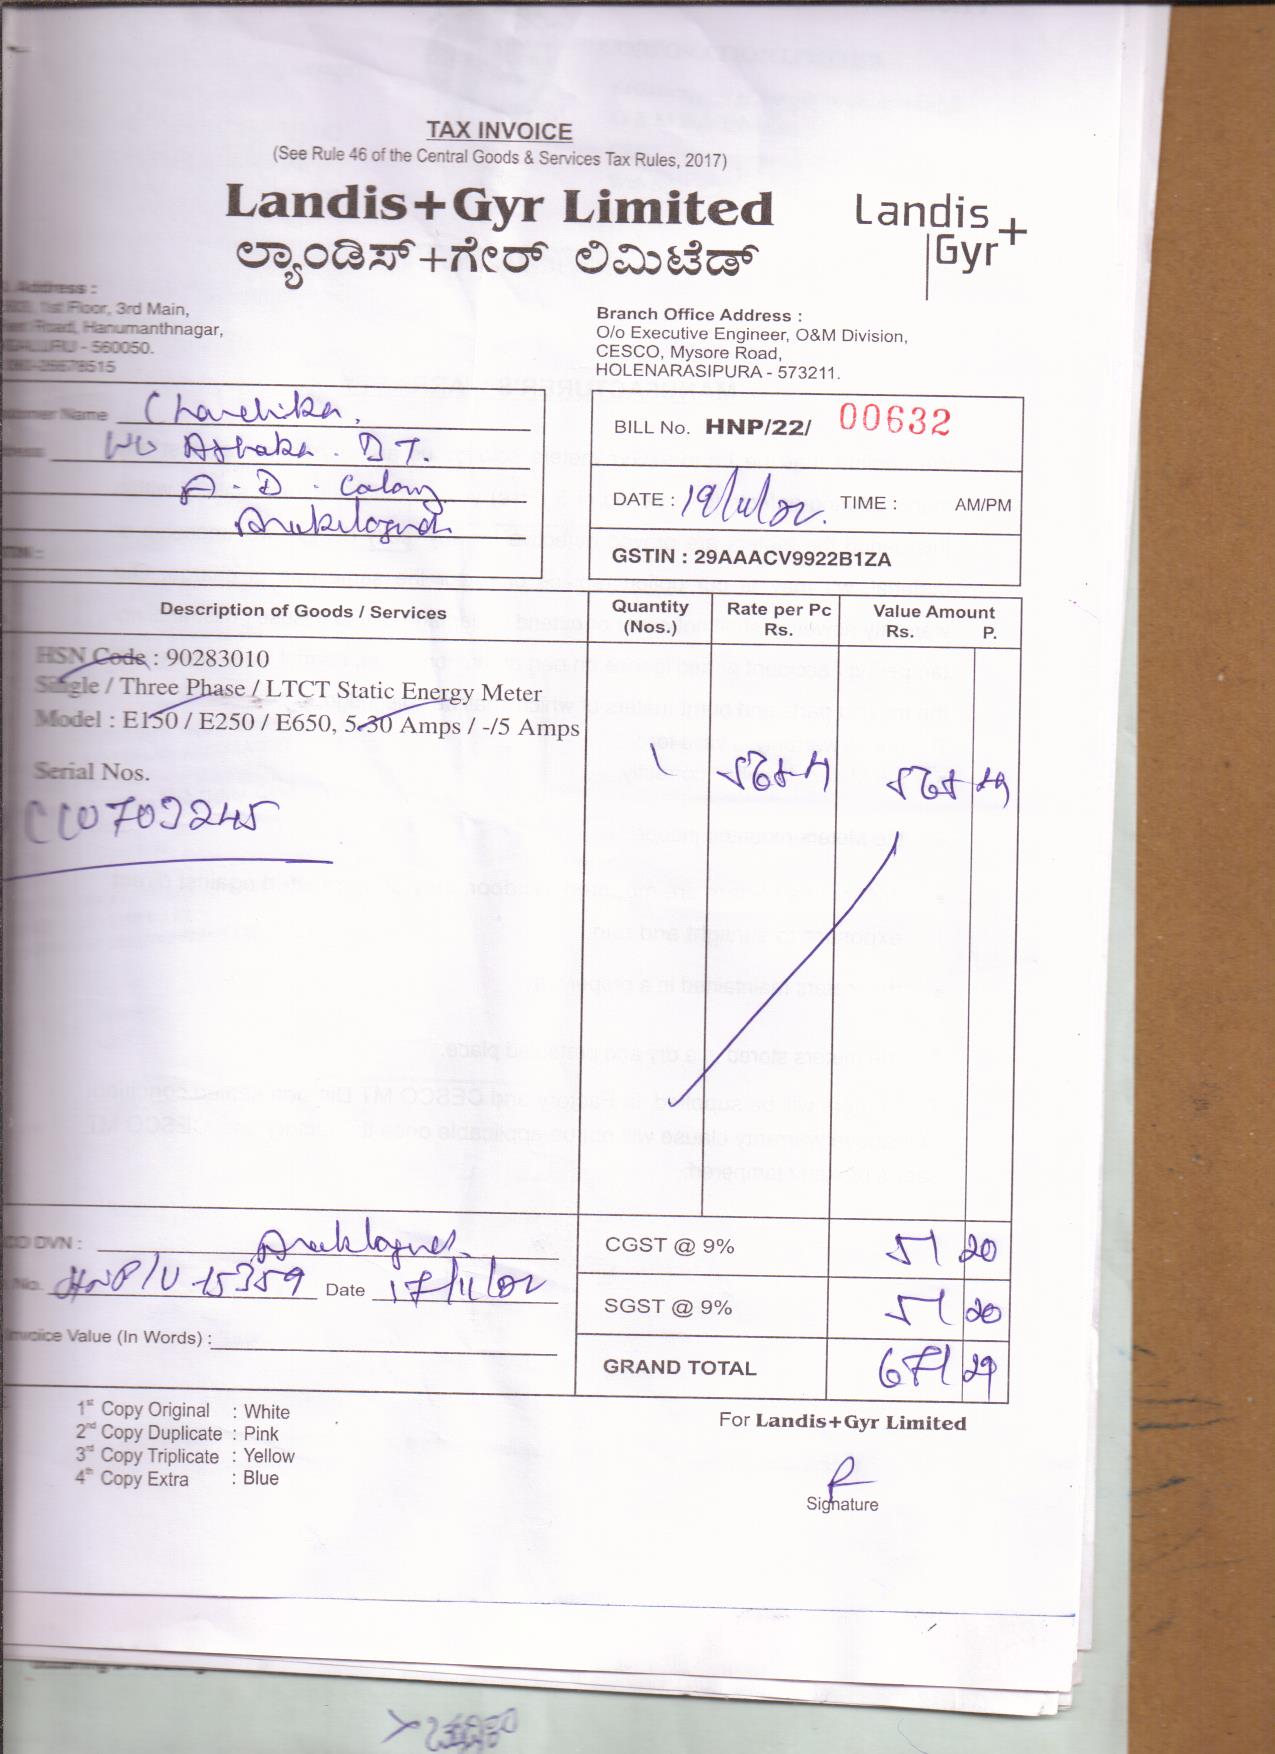 TAX INVOICE
(See Rule 46 of the Central Goods & Services Tax Rules, 2017)
Landis+Gyr Limited
ಲ್ಯಾಂಡಿಸ್+ಗೇರ್ ಲಿಮಿಟೆಡ್
Landis
Gyr+
Address :
1st Floor, 3rd Main,
Road, Hanumanthnagar,
- 560050.
Branch Office Address :
O/o Executive Engineer, O&M Division,
CESCO, Mysore Road,
HOLENARASIPURA - 573211.
Name
A. D. Colony
BILL No. HNP/22/ 00632
DATE : 19/11/22. TIME : AM/PM
GSTIN : 29AAACV9922B1ZA
Description of Goods / Services
Quantity (Nos.)
Rate per Pc Rs.
Value Amount Rs. P.
HSN Code : 90283010
Single / Three Phase / LTCT Static Energy Meter
Model : E150 / E250 / E650, 5-30 Amps / -/5 Amps
Serial Nos.
DVN :
No. HNP/ 15359 Date 17/11/22
Invoice Value (In Words) :
CGST @ 9% 51 20
SGST @ 9% 51 20
GRAND TOTAL 671 29
1st Copy Original : White
2nd Copy Duplicate : Pink
3rd Copy Triplicate : Yellow
4th Copy Extra : Blue
For Landis+Gyr Limited
Signature